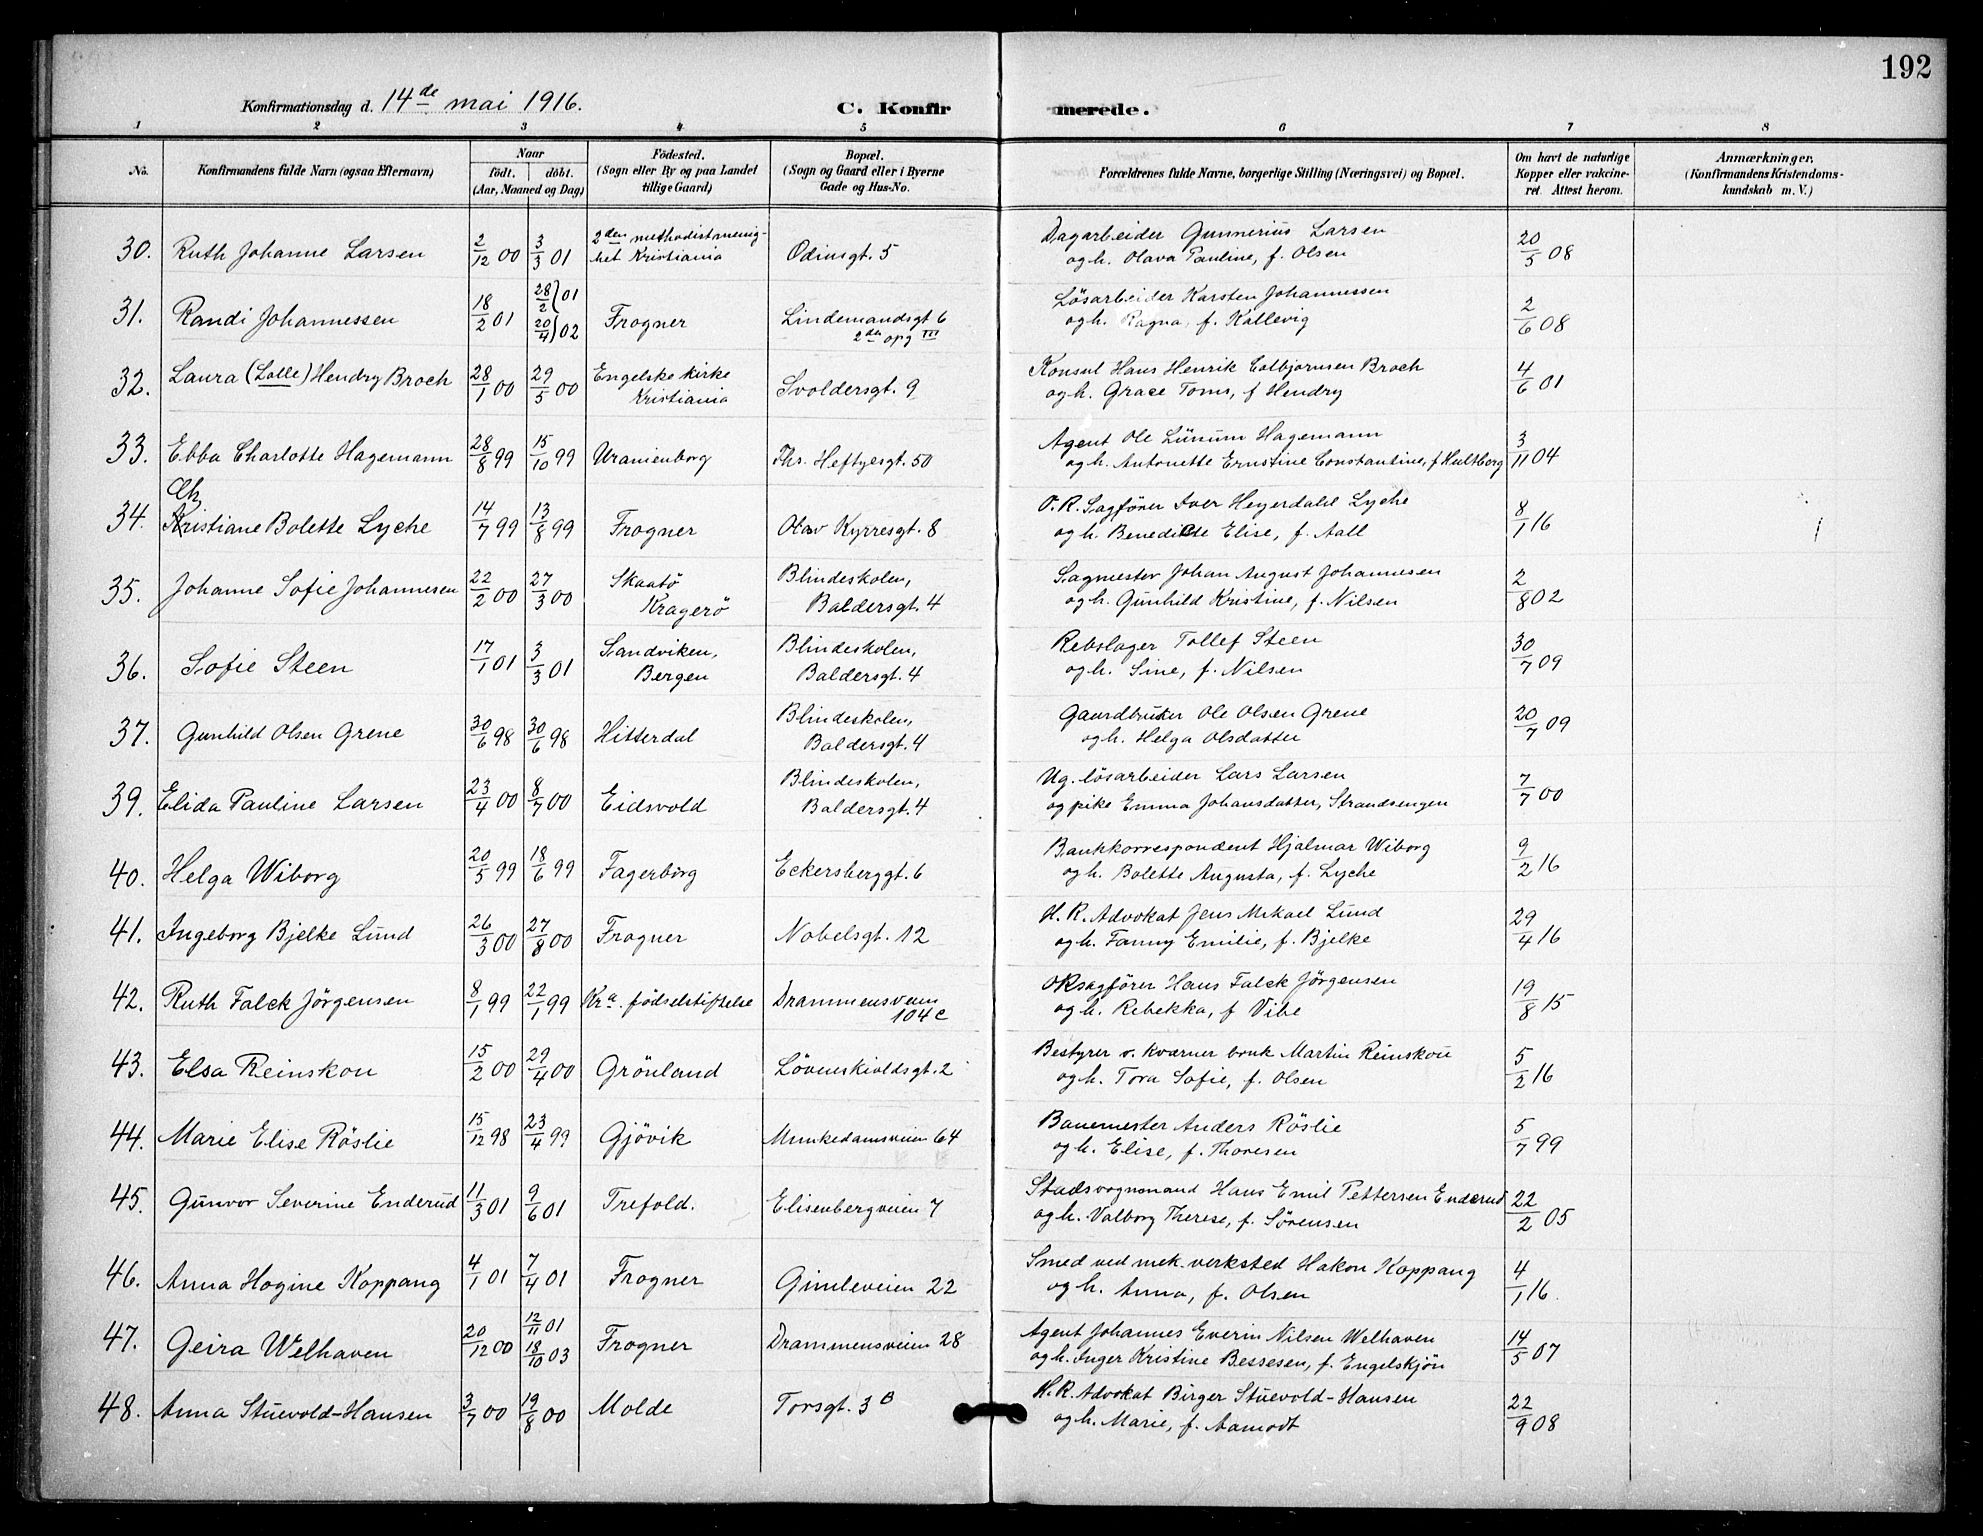 192
Konfirmationsdag d. 14de mai 1916. C. Konfir merede.
1 2 3 4 5 6 7 8
No. Konfirmandens fulde Navn (ogsaa Efternavn) Naar födt. döbt. (Aar, Maaned og Dag) Födested. (Sogn eller By og paa Landet tillige Gaard) Bopæl. (Sogn og Gaard eller i Byerne Gade og Hus-No. Forældrenes fulde Navne, borgerlige Stilling (Næringsvei) og Bopæl. Om havt de naturlige Kopper eller vakcineret. Attest herom. Anmærkninger. (Konfirmandens Kristendomskundskab m. V.)
30. Ruth Johanne Larsen 2/12 00 3/3 01 2den methodistmenighet Kristiania Odinsgt. 5 Dagarbeider Gunnerius Larsen
og h. Olava Pauline, f. Olsen 20/5 08
31. Randi Johannessen 18/2 01 28/2 01 20/4 02 Frogner Lindemandsgt 6 2den opg III Lösarbeider Karsten Johannessen
og h. Ragna, f. Kallevig 2/6 08
32. Laura (Lolle) Hendry Broch 28/1 00 29/5 00 Engelske kirke Kristiania Svoldersgt. 9 Konsul Hans Henrik Colbjornsen Broch
og h. Grace Toms, f Hendry 4/6 01
33. Ebba Charlotte Hagemann 28/8 99 15/10 99 Uranienborg Ths. Heftyesgt. 50 Agent Ole Linum Hagemann
og h. Antonette Ernstine Constantine, f Hultberg 3/11 04
Ch
34. Kristiane Bolette Lyche 14/7 99 13/8 99 Frogner Olav Kyrresgt. 8 O.R. Sagförer Iver Heyerdahl Lyche
og h. Benedicte Elise, f. Aall 8/1 16
35. Johanne Sofie Johannesen 22/2 00 27/3 00 Skaatö Kragerö Blindeskolen, Baldersgt. 4 Sagmester Johan August Johannesen
og h. Gunhild Kristine, f. Nilsen 2/8 02
36. Sofie Steen 17/1 01 3/3 01 Sandviken, Bergen Blindeskolen, Baldersgt. 4 Rebslager Tollef Steen
og h. Sine, f. Nilsen 30/7 09
37. Gunhild Olsen Grene 30/6 98 30/6 98 Hitterdal Blindeskolen, Baldersgt. 4 Gaardbruker Ole Olsen Grene
og h. Helga Olsdatter 20/7 09
39. Elida Pauline Larsen 23/4 00 8/7 00 Eidsvold Blindeskolen, Baldersgt. 4 Ug. lösarbeider Lars Larsen
og pike Emma Johansdatter, Strandsengen 7/7 00
40. Helga Wiborg 20/5 99 18/6 99 Fagerborg Eckersberggt. 6 Bankkorrespondent Hjalmar Wiborg
og h. Bolette Augusta, f. Lyche 9/2 16
41. Ingeborg Bjelke Lund 26/3 00 27/8 00 Frogner Nobelsgt. 12 H. R. Advokat Jens Mikael Lund
og h. Fanny Emilie, f. Bjelke 29/4 16
42. Ruth Falck Jörgensen 8/1 99 22/1 99 Kra. födselstiftelse Drammensveien 104 c O R sagförer Hans Falck Jörgensen
og h. Rebekka, f Vibe 19/8 15
43. Elsa Reinskou 15/2 00 29/4 00 Grönland Lövenskioldsgt. 2 Bestyrer v. Kværner bruk Martin Reinskou
og h. Tora Sofie, f. Olsen 5/2 16
44. Marie Elise Röslie 15/12 98 23/4 99 Gjövik Munkedamsveien 64 Banemester Anders Röslie
og h. Elise, f. Thoresen 5/7 99
45. Gunvor Severine Enderud 11/3 01 9/6 01 Trefold. Elisenbergveien 7 Stadsvognmand Hans Emil Pettersen Enderud
og h. Valborg Therese, f. Sörensen 22/2 05
46. Anna Hogine Koppang 4/1 01 7/4 01 Frogner Gimleveien 22 Smed ved mek. verksted Hakon Koppang
og h. Anna, f. Olsen 4/1 16.
47. Geira Welhaven 20/12 00 12/11 01 18/10 03 Frogner Drammensveien 28 Agent Johannes Everin Nilsen Welhaven
og h. Inger Kristine Bessesen, f. Engelskjön 14/5 07
48. Anna Stuevold-Hansen 3/7 00 19/8 00 Molde Torsgt. 3 B H. R. Advokat Birger Stuevold-Hansen
og h. Marie, f. Aamodt 22/9 08